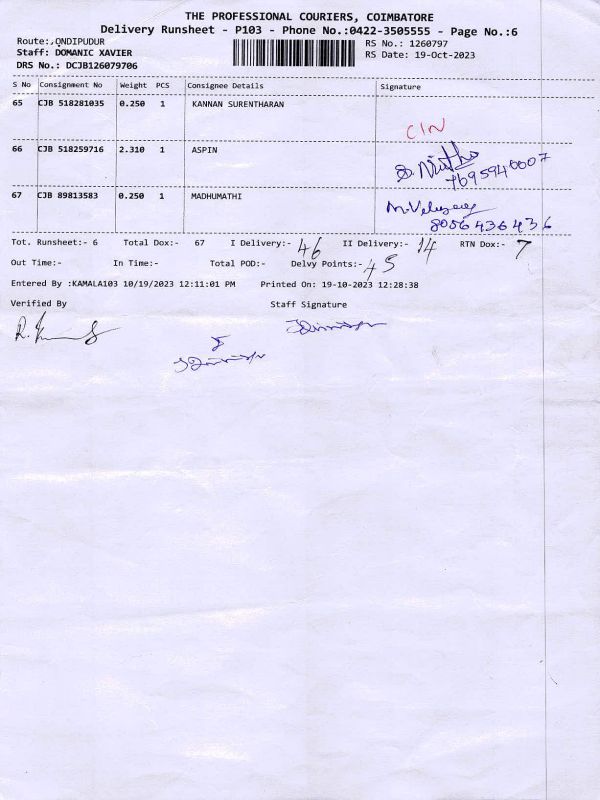 THE PROFESSIONAL COURIERS, COIMBATORE
Delivery Runsheet - P103 - Phone No.:0422-3505555 - Page No.:6
Route:,ONDIPUDUR RS No.: 1260797
Staff: DOMANIC XAVIER RS Date: 19-Oct-2023
DRS No.: DCJB126079706
S No Consignment No Weight PCS Consignee Details Signature
65 CJB 518281035 0.250 1 KANNAN SURENTHARAN
CIN
66 CJB 518259716 2.310 1 ASPIN
7695940007
67 CJB 89813583 0.250 1 MADHUMATHI
8056436436
Tot. Runsheet:- 6 Total Dox:- 67 I Delivery:- 46 II Delivery:- 14 RTN Dox:- 7
Out Time:- In Time:- Total POD:- Delvy Points:- 45
Entered By :KAMALA103 10/19/2023 12:11:01 PM Printed On: 19-10-2023 12:28:38
Verified By Staff Signature